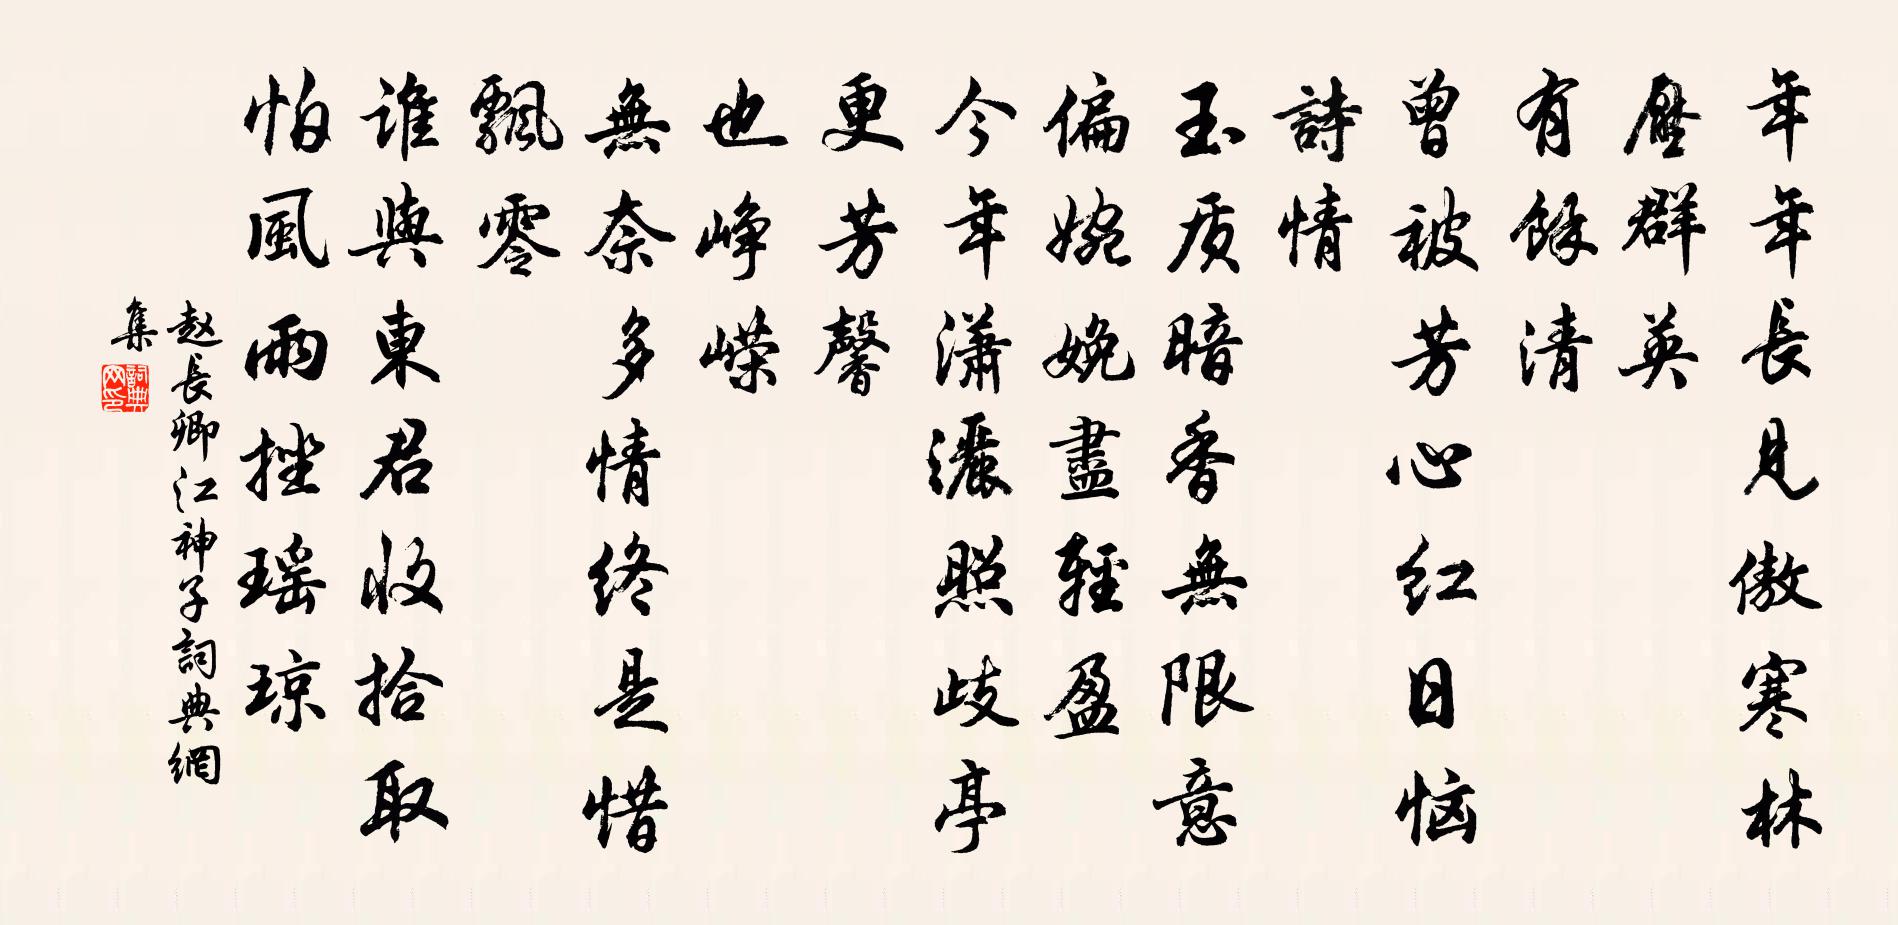 年年長見傲寒林
壓群英
有餘清
曾被芳心红日恼
詩情
玉质暗香無限意
偏婉娩盡輕盈
今年潇灑照歧亭
更芳馨
也峥嵘
無奈多情终是惜
飄零
谁與東君收拾取
怕風雨挫瑶琼
赵長卿江神子詞典網
集
詞典網印